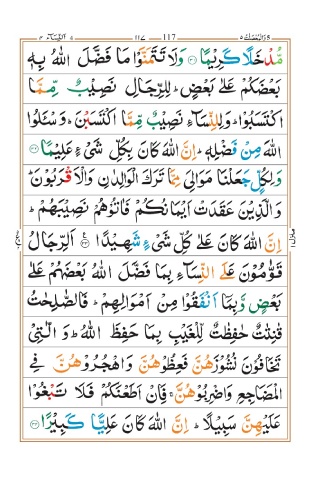 والمحصنت ٥ ١١٧ 117 النسآء ٤
مُّدْخَلًا كَرِيْمًا ﴿٣١﴾ وَلَا تَتَمَنَّوْا مَا فَضَّلَ اللّٰهُ بِهٖ
بَعْضَكُمْ عَلٰى بَعْضٍ ؕ لِلرِّجَالِ نَصِيْبٌ مِّمَّا
اكْتَسَبُوْا ؕ وَلِلنِّسَآءِ نَصِيْبٌ مِّمَّا اكْتَسَبْنَ ؕ وَسْـَٔلُوا
اللّٰهَ مِنْ فَضْلِهٖ ؕ اِنَّ اللّٰهَ كَانَ بِكُلِّ شَىْءٍ عَلِيْمًا ﴿٣٢﴾
وَلِكُلٍّ جَعَلْنَا مَوَالِىَ مِمَّا تَرَكَ الْوَالِدٰنِ وَالْاَقْرَبُوْنَ ؕ
وَالَّذِيْنَ عَقَدَتْ اَيْمَانُكُمْ فَاٰتُوْهُمْ نَصِيْبَهُمْ ؕ
اِنَّ اللّٰهَ كَانَ عَلٰى كُلِّ شَىْءٍ شَهِيْدًا ﴿٣٣﴾ اَلرِّجَالُ
قَوّٰمُوْنَ عَلَى النِّسَآءِ بِمَا فَضَّلَ اللّٰهُ بَعْضَهُمْ عَلٰى
بَعْضٍ وَّبِمَاۤ اَنْفَقُوْا مِنْ اَمْوَالِهِمْ ؕ فَالصّٰلِحٰتُ
قٰنِتٰتٌ حٰفِظٰتٌ لِّلْغَيْبِ بِمَا حَفِظَ اللّٰهُ ؕ وَالّٰتِىْ
تَخَافُوْنَ نُشُوْزَهُنَّ فَعِظُوْهُنَّ وَاهْجُرُوْهُنَّ فِى
الْمَضَاجِعِ وَاضْرِبُوْهُنَّ ۚ فَاِنْ اَطَعْنَكُمْ فَلَا تَبْغُوْا
عَلَيْهِنَّ سَبِيْلًا ؕ اِنَّ اللّٰهَ كَانَ عَلِيًّا كَبِيْرًا ﴿٣٤﴾